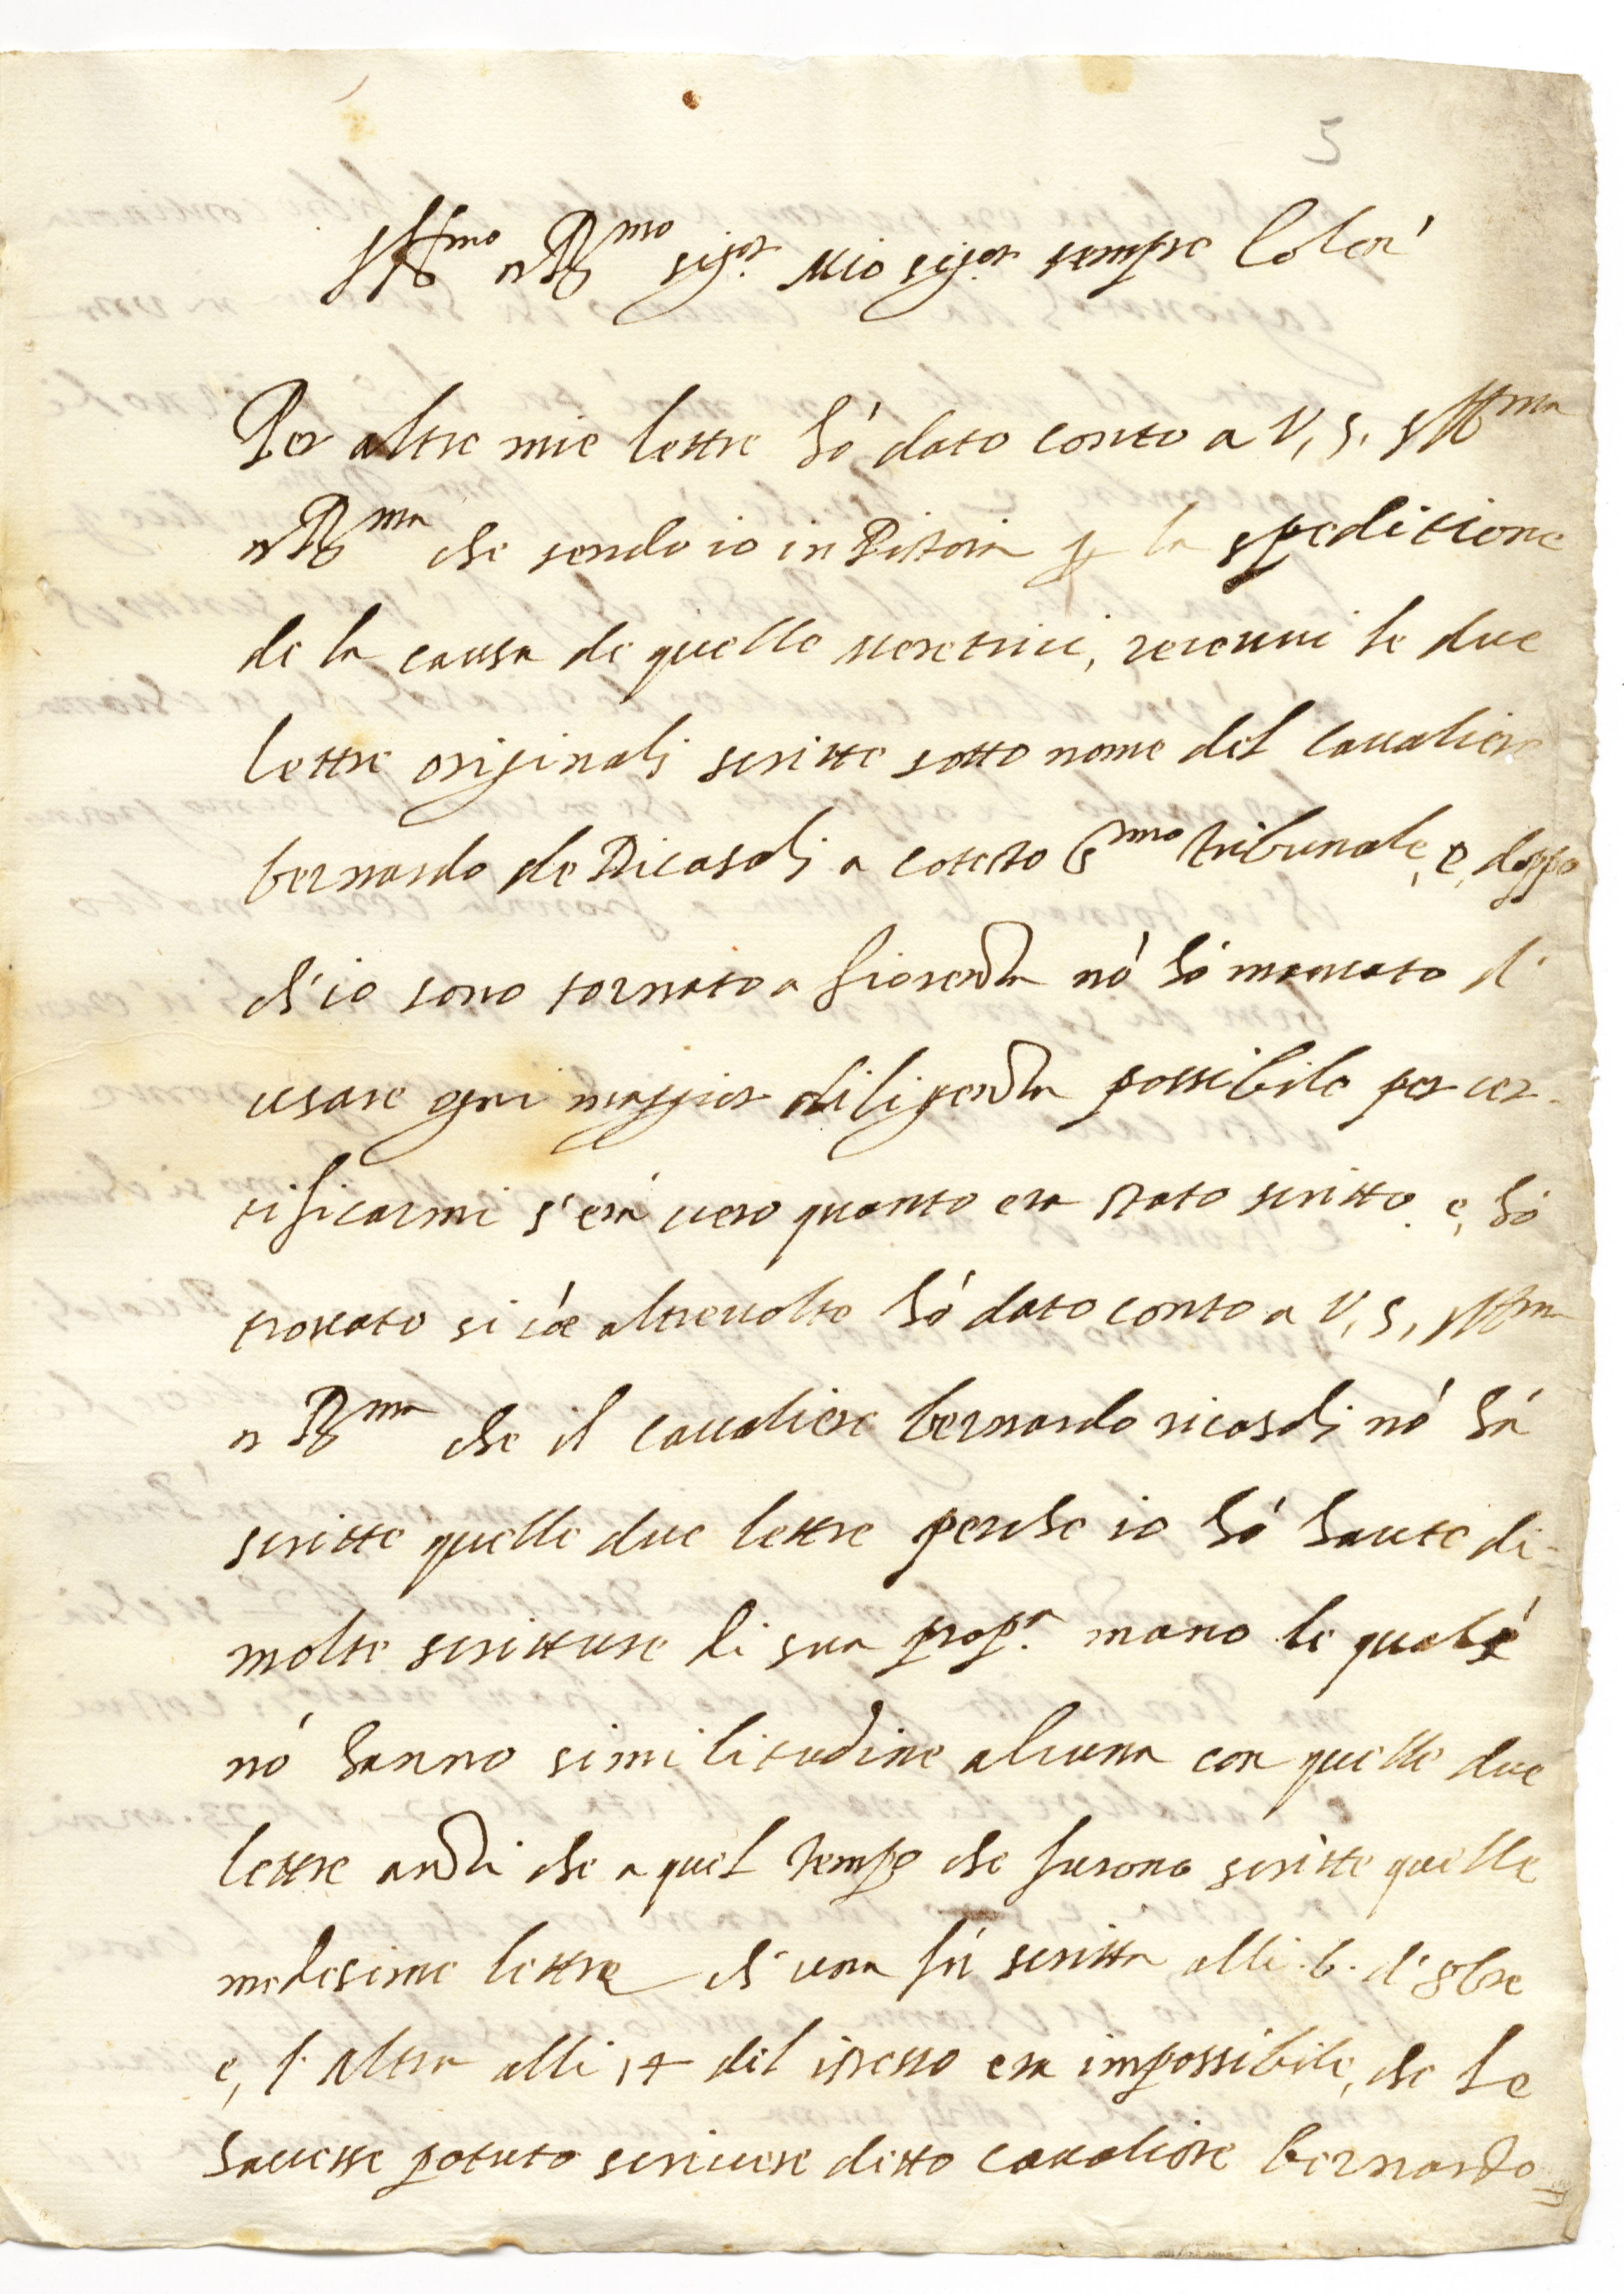 5
Ill.mo et R.mo sig.r Mio sig.r sempre Coler.'
Per altre mie lettre hó dato conto a V, S, Ill.ma
et R.ma che sendo io in Pistoia p la speditione
de la causa de quelle meretrici, recevvi le due
lettre originali scritte sotto nome del cavaliere
bernardo de Ricasoli a cotesto S.mo tribunale, e, doppo
ch'io sono tornato a fiorenza nó hó mancato d'
usare ogni maggior diligenza possibile per cer-
tificarmi s'era vero quanto era stato scritto. e, hó
trovato si cóe altrevolte hó dato conto a V, S, Ill.ma
et R.ma che il cavaliere bernardo ricasoli nó há
scritte quelle due lettre perche io hó havute di-
molte scritture di sua prop.a mano le quali
nó hanno similitudine alcuna con quelle due
lettre anzi che a quel tempo che furono scritte quelle
medesime lettre ch'una fú scritta alli. 6. d'8bre
e, l'altra alli 14 del istesso era impossibile, che le
havesse potuto scrivere ditto cavaliere bernardo=